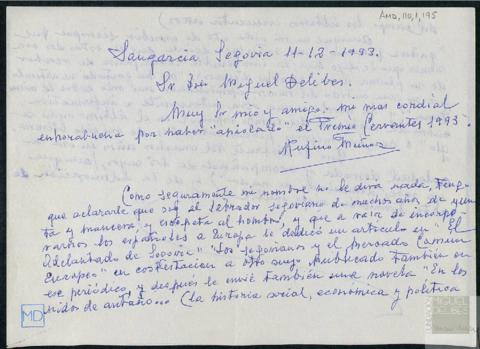 AMD, 110, 1, 195
Sangarcía Segovia 11-12-1993.
Sr Don Miguel Delibes.
Muy Sr mio y amigo: mi mas cordial
enhorabuena por haber "apiolado" el Premio Cervantes 1993
Rufino Muñoz
Como seguramente mi nombre no le dira nada, teng-
que aclararle que soy el labrador segoviano de muchos años de yun-
ta y mancera, y escopeta al hombro, y que a raiz de incorpo-
rarnos los españoles a Europa le dedicó un articulo en "El
Adelantado de Segovia" "Los segovianos y el Mercado Comun
Europeo" en contestacion a otro suyo publicado tambien en
ese periódico, y después le envié también una novela "En los
nidos de antaño... (la historia social, económica y politica
MD
MIGUEL
DELIBES